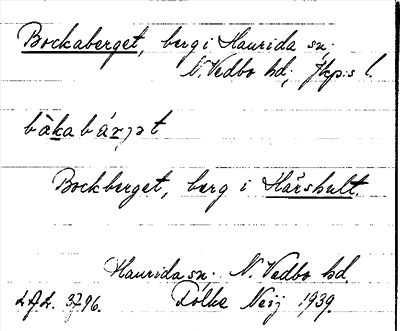 Bockaberget, berg i Haurida sn;
N. Vedbo hd; Jkp:s l.
bàkabárjət
Bockberget, berg i Hårshult.
Haurida sn. N. Vedbo hd.
3796. Folke Neij 1939.